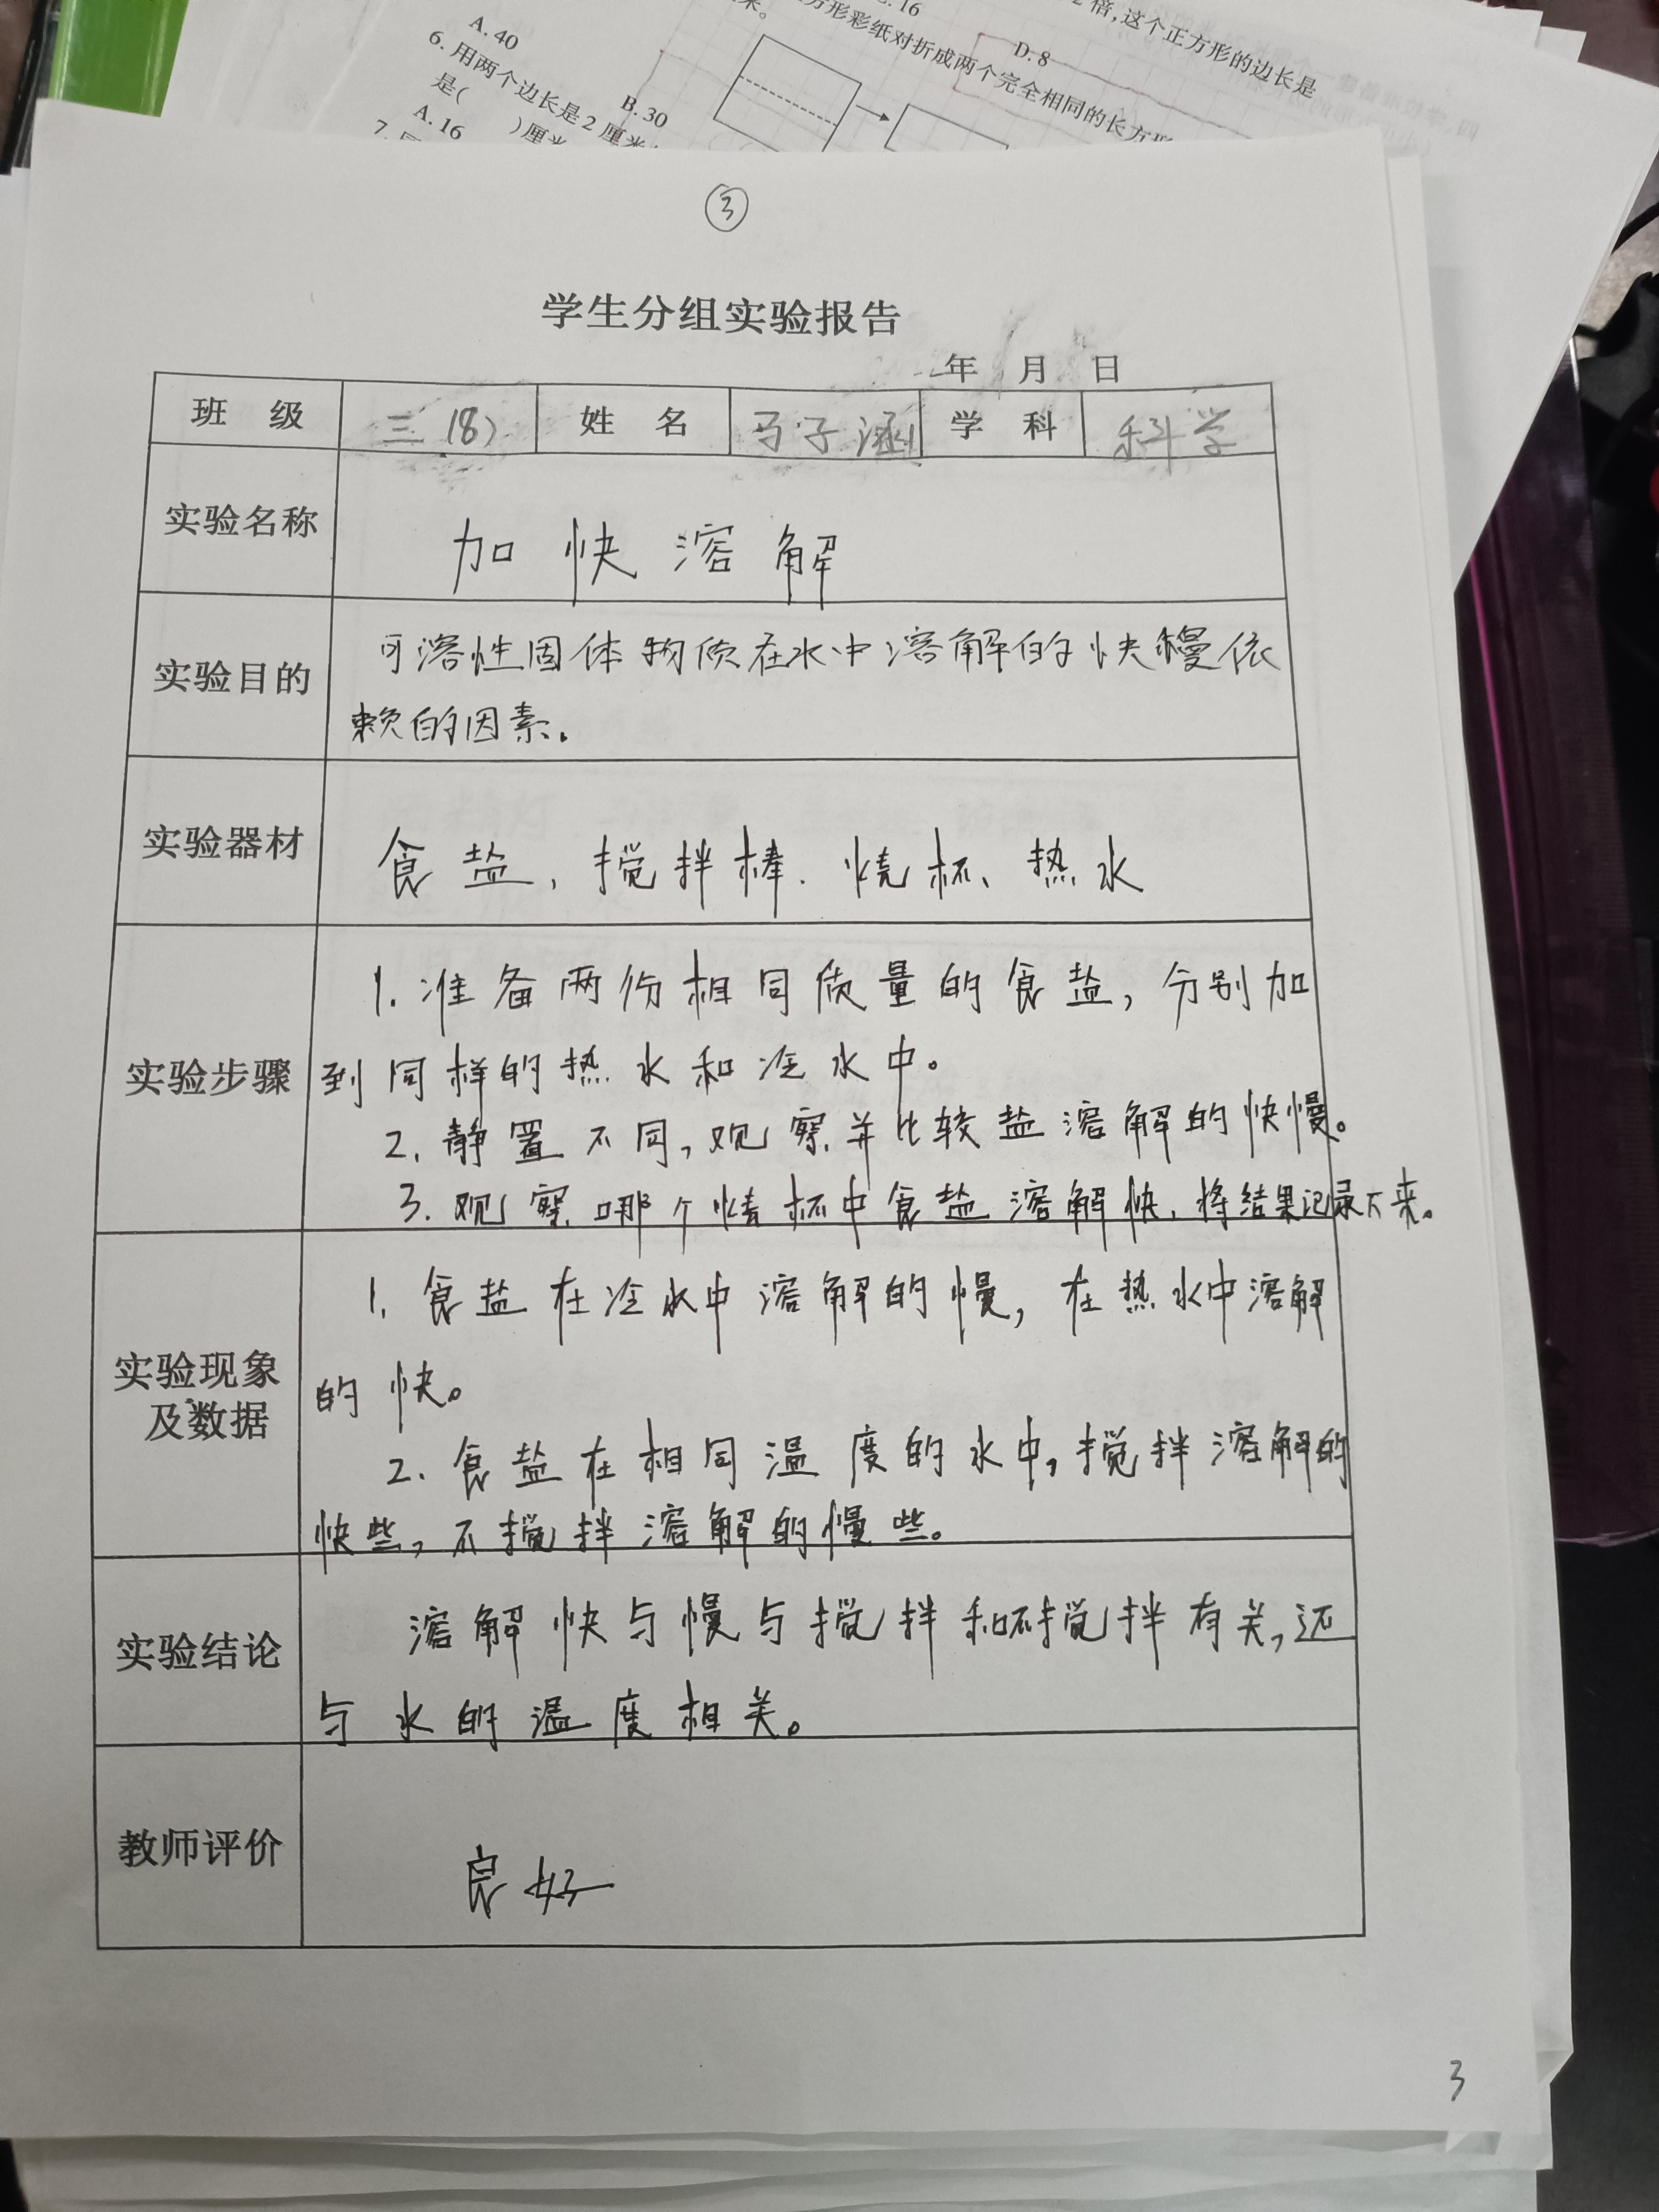 A. 40
B. 30
C. 16
D. 8
6. 用两个边长是2厘米
是( )厘米
A. 16
方形彩纸对折成两个完全相同的长方形
2倍,这个正方形的边长是
③
学生分组实验报告
年 月 日
班 级 三(8) 姓 名 马子涵 学 科 科学
实验名称 加快溶解
实验目的 可溶性固体物质在水中溶解的快慢依
赖的因素。
实验器材 食盐、搅拌棒、烧杯、热水
实验步骤
1. 准备两份相同质量的食盐,分别加
到同样的热水和冷水中。
2. 静置不同,观察并比较盐溶解的快慢。
3. 观察哪个烧杯中食盐溶解快,将结果记录下来。
实验现象
及数据
1. 食盐在冷水中溶解的慢,在热水中溶解
的快。
2. 食盐在相同温度的水中,搅拌溶解的
快些,不搅拌溶解的慢些。
实验结论 溶解快与慢与搅拌和不搅拌有关,还
与水的温度相关。
教师评价 良好
3